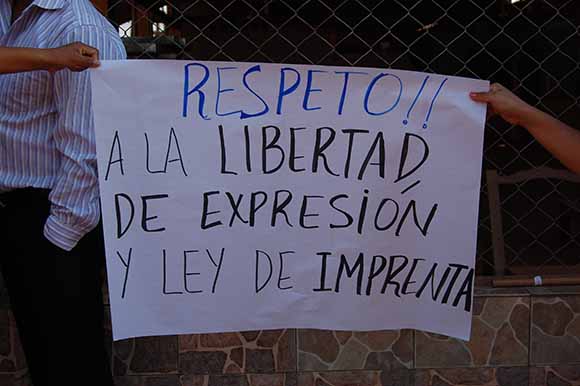 RESPETO!!
A LA LIBERTAD
DE EXPRESIÓN
Y LEY DE IMPRENTA